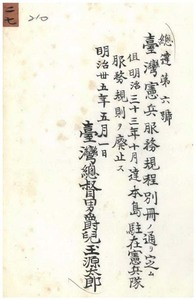 二七
210
總達第六號
臺灣憲兵服務規程別冊ノ通リ定ム
但明治三十三年十月達本島駐在憲兵隊
服務規則ヲ廢止ス
明治卅五年五月一日
臺灣總督男爵兒玉源太郎